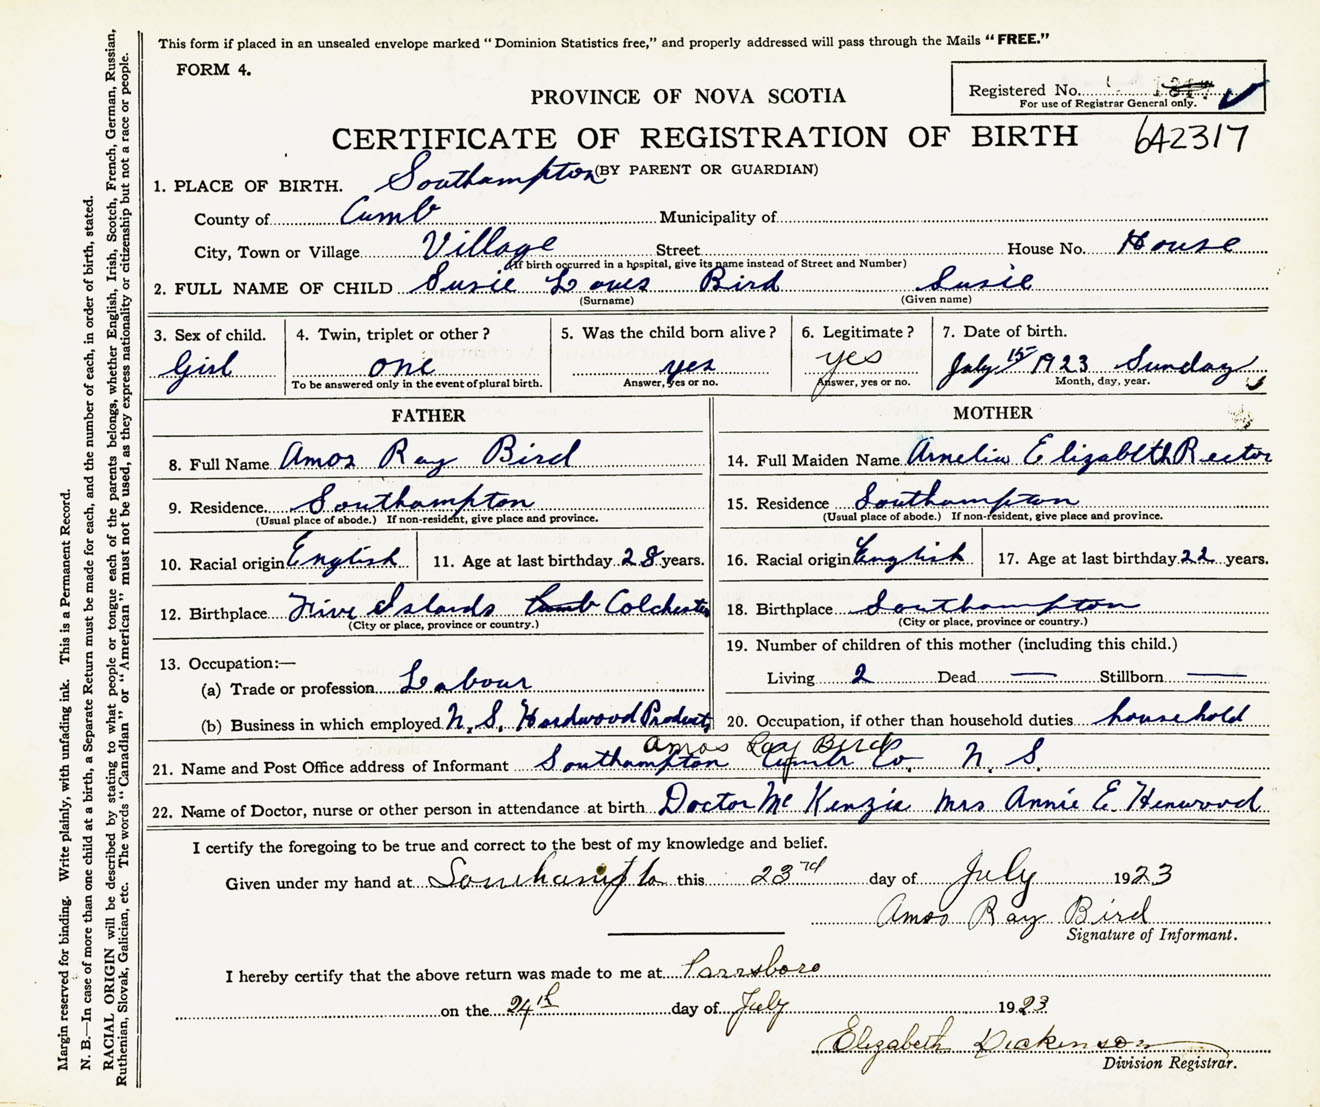 This form if placed in an unsealed envelope marked "Dominion Statistics free," and properly addressed will pass through the Mails "FREE."
FORM 4.
Registered No.
For use of Registrar General only.
PROVINCE OF NOVA SCOTIA
CERTIFICATE OF REGISTRATION OF BIRTH 642317
(BY PARENT OR GUARDIAN)
1. PLACE OF BIRTH. Southampton
County of Cumb Municipality of
City, Town or Village Village Street House No. House
(If birth occurred in a hospital, give its name instead of Street and Number)
2. FULL NAME OF CHILD Susie Bird Susie
(Surname) (Given name)
3. Sex of child. 4. Twin, triplet or other? 5. Was the child born alive? 6. Legitimate? 7. Date of birth.
Girl one yes yes July 15 1923 Sunday
To be answered only in the event of plural birth. Answer, yes or no. Answer, yes or no. Month, day, year.
FATHER
8. Full Name Amos Ray Bird
9. Residence Southampton
(Usual place of abode.) If non-resident, give place and province.
10. Racial origin English 11. Age at last birthday 28 years.
12. Birthplace Five Islands Cumb Colchester
(City or place, province or country.)
13. Occupation:—
(a) Trade or profession Labour
(b) Business in which employed N. S. Hardwood Products
MOTHER
14. Full Maiden Name Amelia Elizabeth Rector
15. Residence Southampton
(Usual place of abode.) If non-resident, give place and province.
16. Racial origin English 17. Age at last birthday 22 years.
18. Birthplace Southampton
(City or place, province or country.)
19. Number of children of this mother (including this child.)
Living 2 Dead — Stillborn —
20. Occupation, if other than household duties household
Amos Ray Bird
21. Name and Post Office address of Informant Southampton Cumb Co. N. S.
22. Name of Doctor, nurse or other person in attendance at birth Doctor McKenzie Mrs Annie E. Henwood
I certify the foregoing to be true and correct to the best of my knowledge and belief.
Given under my hand at Southampto this 23rd day of July 1923
Amos Ray Bird
Signature of Informant.
I hereby certify that the above return was made to me at Parrsboro
on the 24th day of July 1923
Elizabeth Dickenson
Division Registrar.
Margin reserved for binding. Write plainly, with unfading ink. This is a Permanent Record.
N. B.—In case of more than one child at a birth, a Separate Return must be made for each, and the number of each, in order of birth, stated.
RACIAL ORIGIN will be described by stating to what people or tongue each of the parents belongs, whether English, Irish, Scotch, French, German, Russian,
Ruthenian, Slovak, Galician, etc. The words "Canadian" or "American" must not be used, as they express nationality or citizenship but not a race or people.